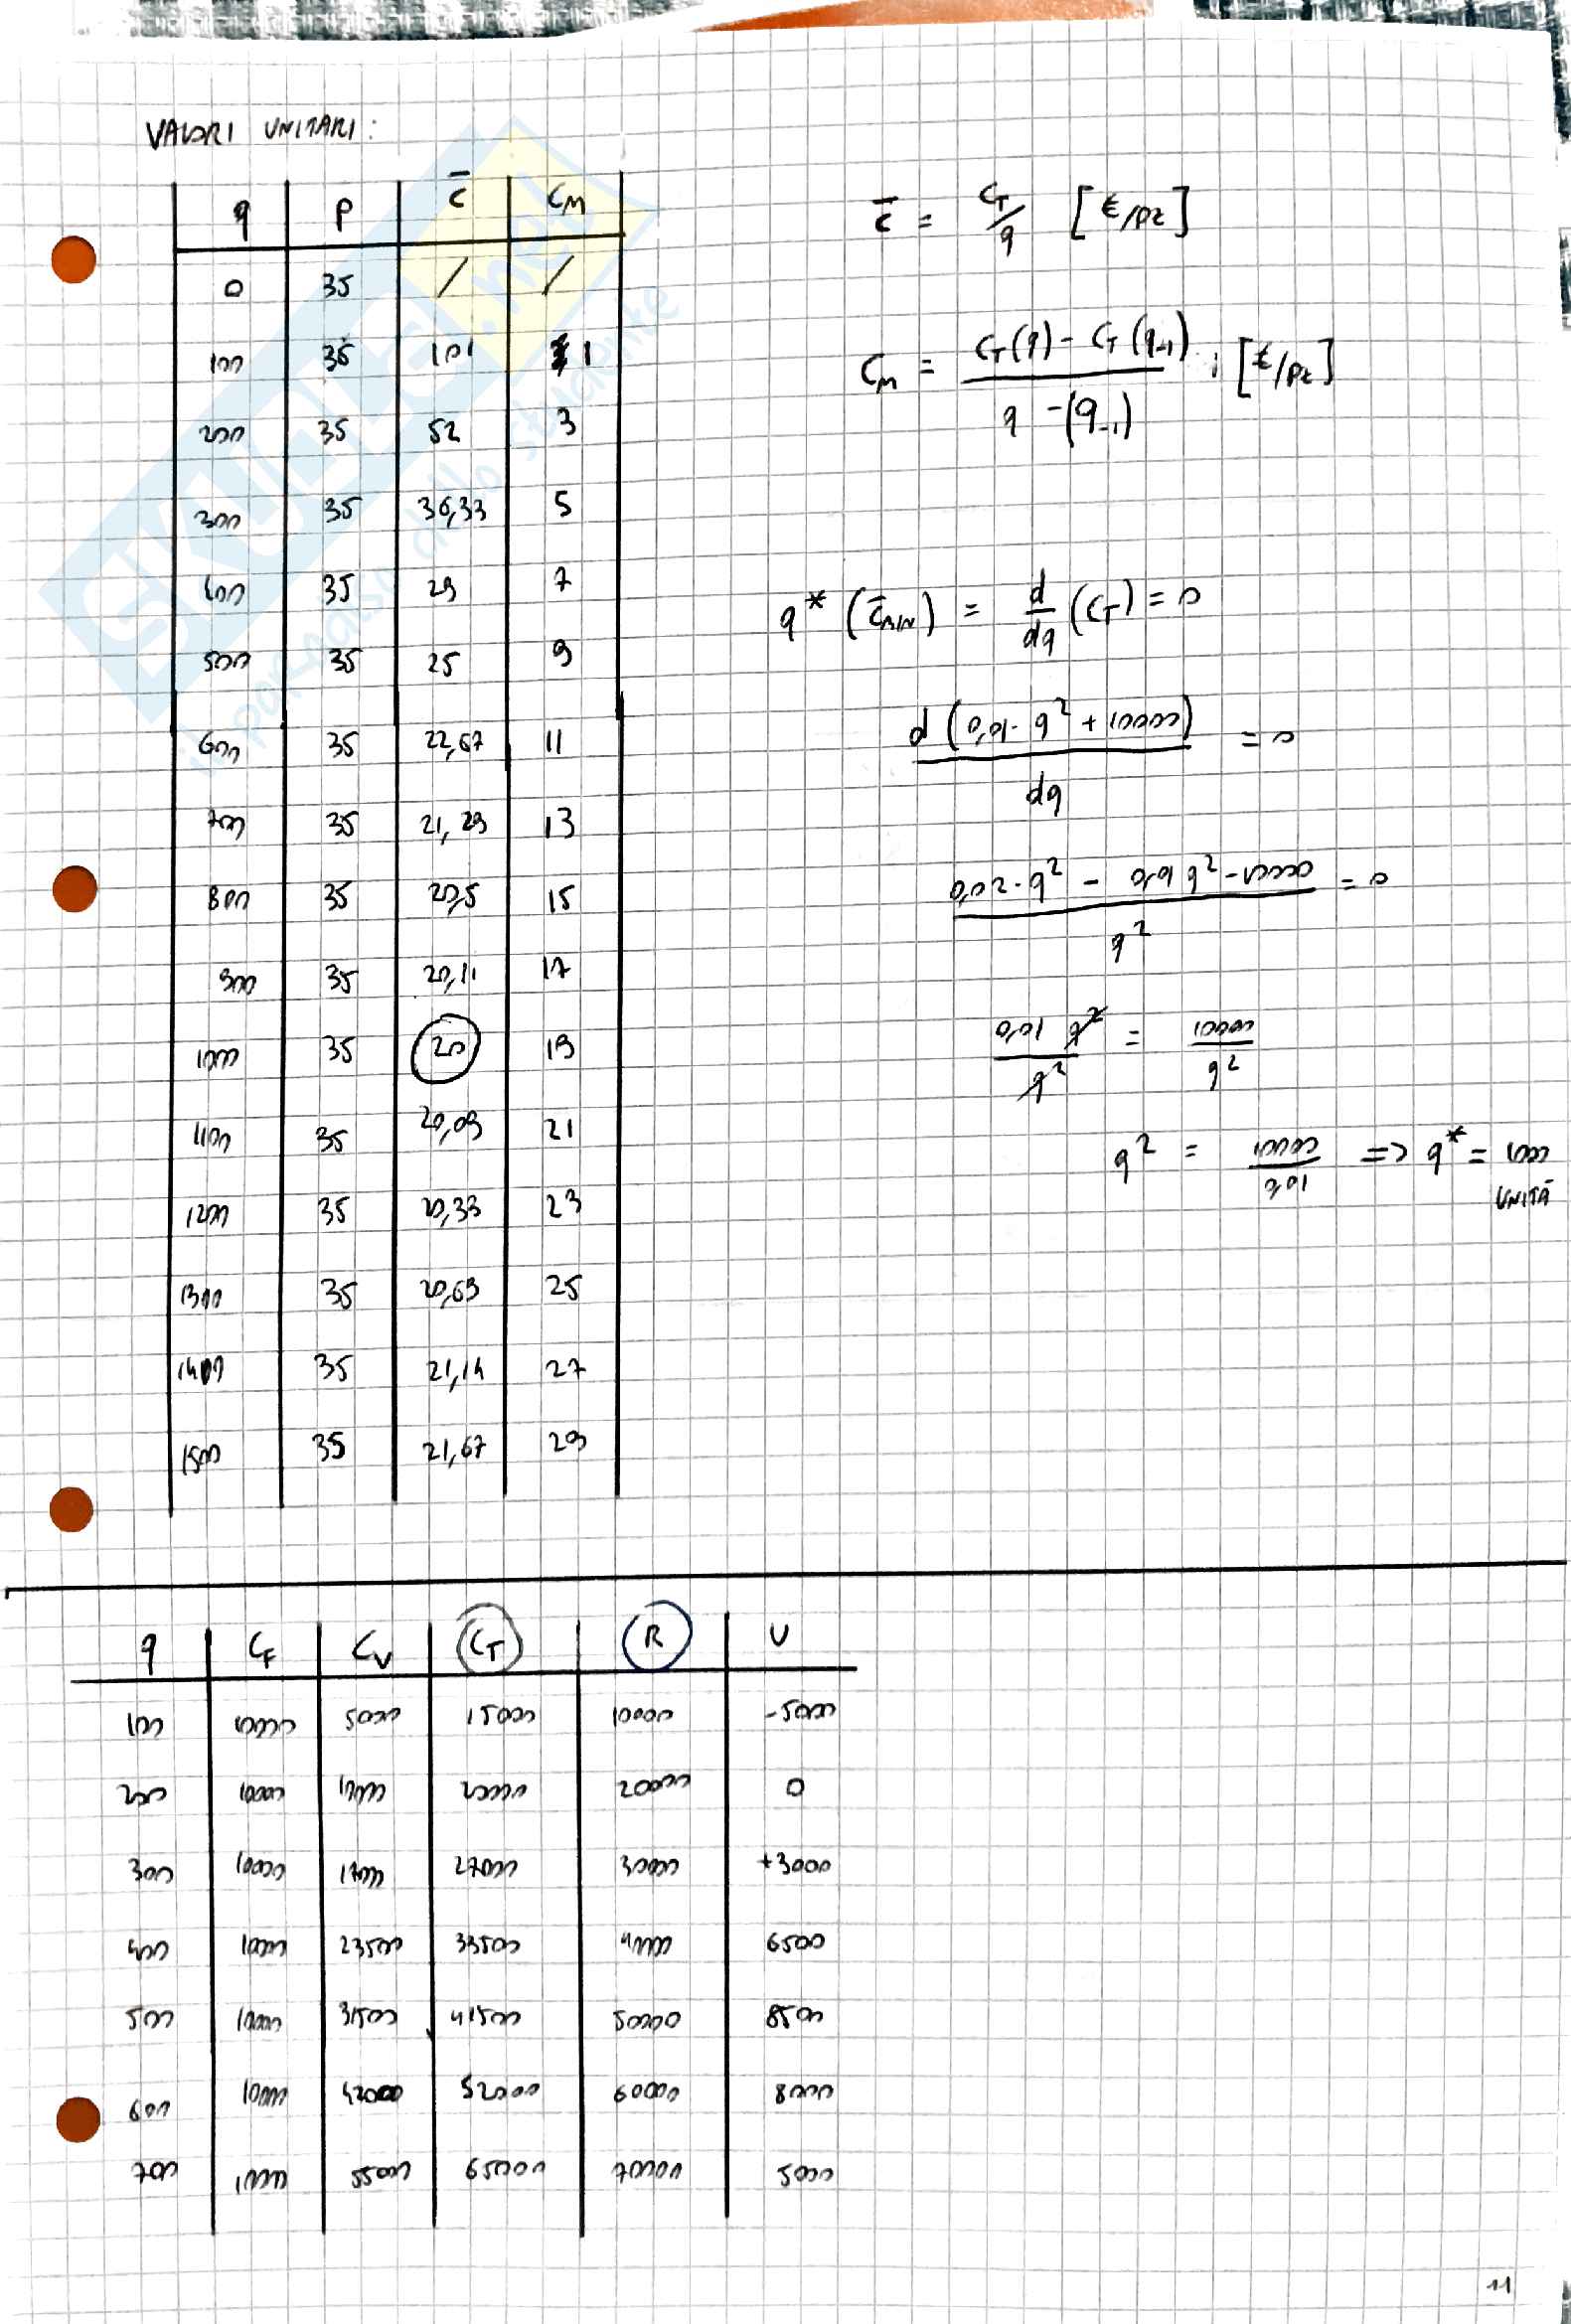 VALORI UNITARI:
q P c̄ CM
0 35 / /
100 35 101 1
200 35 52 3
300 35 36,33 5
400 35 29 7
500 35 25 9
600 35 22,67 11
700 35 21,29 13
800 35 20,5 15
900 35 20,11 17
1000 35 20 19
1100 35 20,09 21
1200 35 20,33 23
1300 35 20,69 25
1400 35 21,14 27
1500 35 21,67 29
c̄ = CT/q [€/pz]
CM = (CT(q) - CT(q-1)) / (q - (q-1)) ; [€/pz]
q* (c̄MIN) = d/dq (CT) = 0
d (0,01 · q² + 10000) / dq = 0
(0,02 · q² - 0,01 q² - 10000) / q² = 0
0,01 q² / q² = 10000 / q²
q² = 10000 / 0,01 => q* = 1000
UNITÀ
q CF CV CT R U
100 10000 5000 15000 10000 -5000
200 10000 10000 20000 20000 0
300 10000 17000 27000 30000 +3000
400 10000 23500 33500 40000 6500
500 10000 31500 41500 50000 8500
600 10000 42000 52000 60000 8000
700 10000 55000 65000 70000 5000
11
SKUOLA.net
il paradiso dello studente